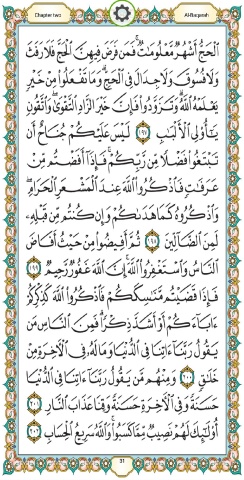 Chapter two Al-Baqarah
ٱلْحَجُّ أَشْهُرٌ مَّعْلُومَٰتٌ ۚ فَمَن فَرَضَ فِيهِنَّ ٱلْحَجَّ فَلَا رَفَثَ
وَلَا فُسُوقَ وَلَا جِدَالَ فِى ٱلْحَجِّ ۗ وَمَا تَفْعَلُوا۟ مِنْ خَيْرٍ
يَعْلَمْهُ ٱللَّهُ ۗ وَتَزَوَّدُوا۟ فَإِنَّ خَيْرَ ٱلزَّادِ ٱلتَّقْوَىٰ ۚ وَٱتَّقُونِ
يَٰٓأُو۟لِى ٱلْأَلْبَٰبِ ١٩٧ لَيْسَ عَلَيْكُمْ جُنَاحٌ أَن
تَبْتَغُوا۟ فَضْلًا مِّن رَّبِّكُمْ ۚ فَإِذَآ أَفَضْتُم مِّنْ
عَرَفَٰتٍ فَٱذْكُرُوا۟ ٱللَّهَ عِندَ ٱلْمَشْعَرِ ٱلْحَرَامِ ۖ
وَٱذْكُرُوهُ كَمَا هَدَىٰكُمْ وَإِن كُنتُم مِّن قَبْلِهِۦ
لَمِنَ ٱلضَّآلِّينَ ١٩٨ ثُمَّ أَفِيضُوا۟ مِنْ حَيْثُ أَفَاضَ
ٱلنَّاسُ وَٱسْتَغْفِرُوا۟ ٱللَّهَ ۚ إِنَّ ٱللَّهَ غَفُورٌ رَّحِيمٌ ١٩٩
فَإِذَا قَضَيْتُم مَّنَٰسِكَكُمْ فَٱذْكُرُوا۟ ٱللَّهَ كَذِكْرِكُمْ
ءَابَآءَكُمْ أَوْ أَشَدَّ ذِكْرًا ۗ فَمِنَ ٱلنَّاسِ مَن
يَقُولُ رَبَّنَآ ءَاتِنَا فِى ٱلدُّنْيَا وَمَا لَهُۥ فِى ٱلْءَاخِرَةِ مِنْ
خَلَٰقٍ ٢٠٠ وَمِنْهُم مَّن يَقُولُ رَبَّنَآ ءَاتِنَا فِى ٱلدُّنْيَا
حَسَنَةً وَفِى ٱلْءَاخِرَةِ حَسَنَةً وَقِنَا عَذَابَ ٱلنَّارِ ٢٠١
أُو۟لَٰٓئِكَ لَهُمْ نَصِيبٌ مِّمَّا كَسَبُوا۟ ۚ وَٱللَّهُ سَرِيعُ ٱلْحِسَابِ ٢٠٢
31